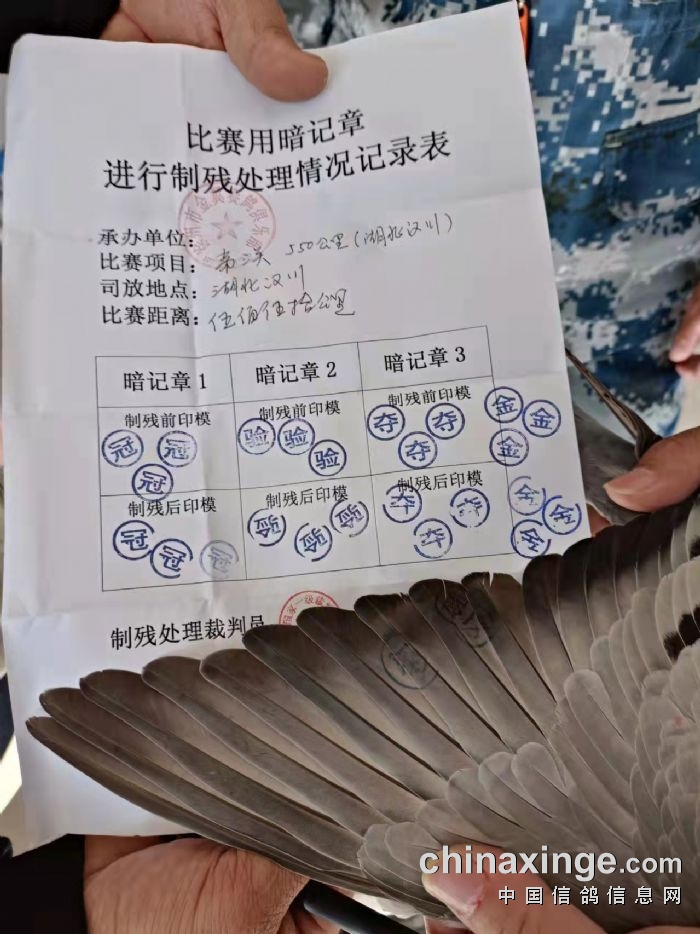 比赛用暗记章
进行制残处理情况记录表
承办单位:
比赛项目: 550公里(湖北汉川)
司放地点: 湖北汉川
比赛距离: 伍佰伍拾公里
暗记章1 暗记章2 暗记章3
制残前印模 制残前印模 制残前印模
冠 冠 冠 验 验 验 夺 夺 夺 金 金 金
制残后印模 制残后印模 制残后印模
冠 冠 冠 验 验 验 夺 夺 夺 金 金 金
制残处理裁判员
chinaxinge.com
中国信鸽信息网